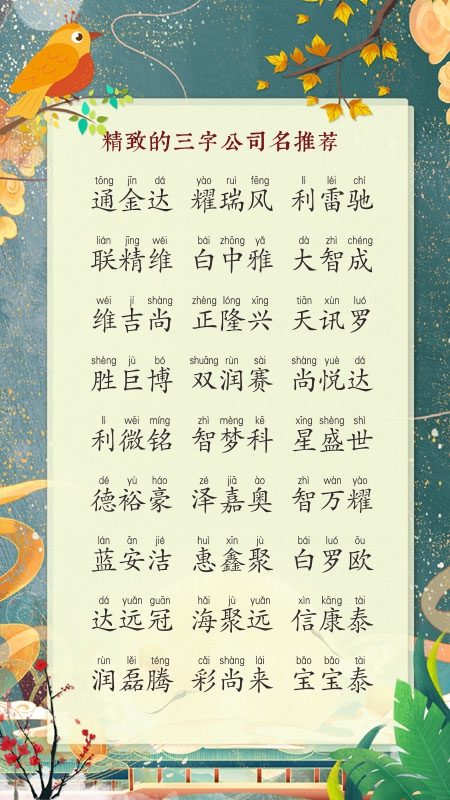 精致的三字公司名推荐
tōng jīn dá yào ruì fēng lì léi chí
通金达 耀瑞风 利雷驰
lián jīng wéi bái zhōng yǎ dà zhì chéng
联精维 白中雅 大智成
wéi jí shàng zhèng lóng xīng tiān xùn luó
维吉尚 正隆兴 天讯罗
shèng jù bó shuāng rùn sài shàng yuè dá
胜巨博 双润赛 尚悦达
lì wēi míng zhì mèng kē xīng shèng shì
利微铭 智梦科 星盛世
dé yù háo zé jiā ào zhì wàn yào
德裕豪 泽嘉奥 智万耀
lán ān jié huì xīn jù bái luó ōu
蓝安洁 惠鑫聚 白罗欧
dá yuǎn guān hǎi jù yuǎn xìn kāng tài
达远冠 海聚远 信康泰
rùn lěi téng cǎi shàng lái bǎo bǎo tài
润磊腾 彩尚来 宝宝泰